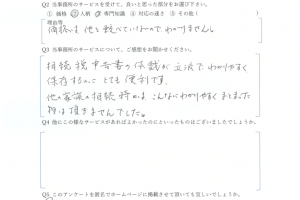 Q2 当事務所のサービスを受けて、良いと思った部分をお選び下さい。
① 価格 ② 人柄 ③ 専門知識 ④ 対応の速さ ⑤ その他（ ）
理由等
価格は他と較べていないのでわかりません。
Q3 当事務所のサービスについて、ご感想をお聞かせください。
相続税申告書の体裁が立派でわかりやすく
保存するのにとても便利です。
他の家族の相続時は、こんなにわかりやすくまとまった
物は頂きませんでした。
Q4 他にこの様なサービスがあればよかったのにといったものはございましたでしょうか。
Q5 このアンケートを匿名でホームページに掲載させて頂いても宜しいでしょうか。